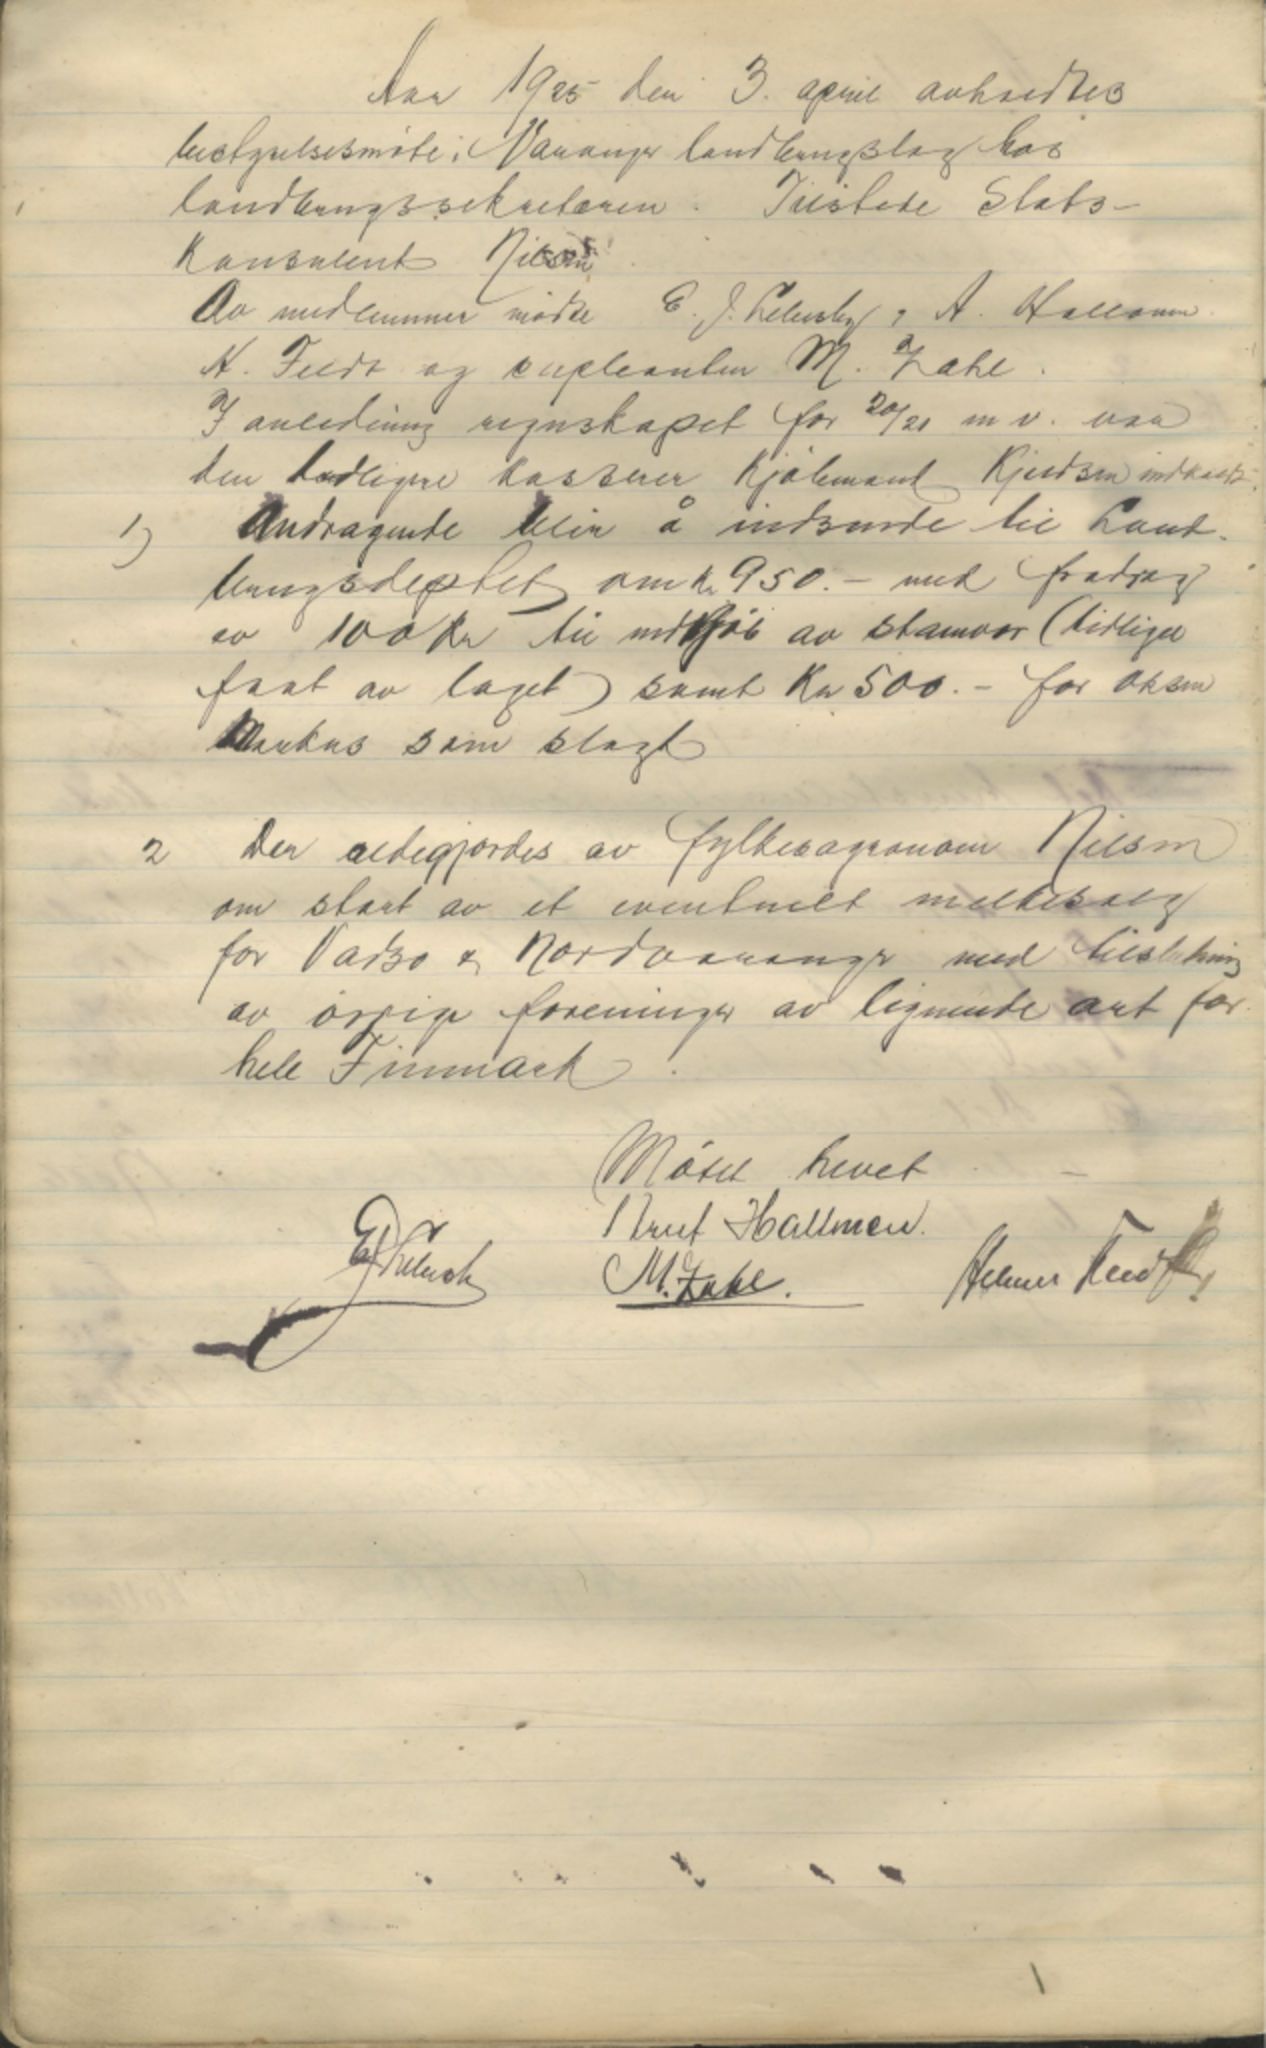 Aar 1925 den 3. april avholdtes
bestyrelsesmöte i Varanger landbrugslag hos
landbrugssekretæren. Tilstede Stats-
Konsulent Nilsen
Av medlemmer mødte E. J. Lelusky, A. Hallonen
H. Feldt og supleanten M. Zahl.
I anledning regnskapet for 20/21 m v. var
den tidligere kasserer Kjöbmand Kjeldsen indkaldt.
1) Andragende blir å indsende til Land-
brugsdeptet om kr 950.- med fradrag
av 100 Kr til indkjöb av stamvær (tidligere
faat av laget) samt Kr 500.- for oksen
Markus som slagt
2 Der redegjordes av fylkesagronom Nilsen
om start av et eventuelt melkesalg
for Vadsø & Nordvaranger med tilslutning
av övrige foreninger av lignende art for
hele Finmark.
Mötet hevet
Hallonen.
M. Zahl. Helmer Feldt